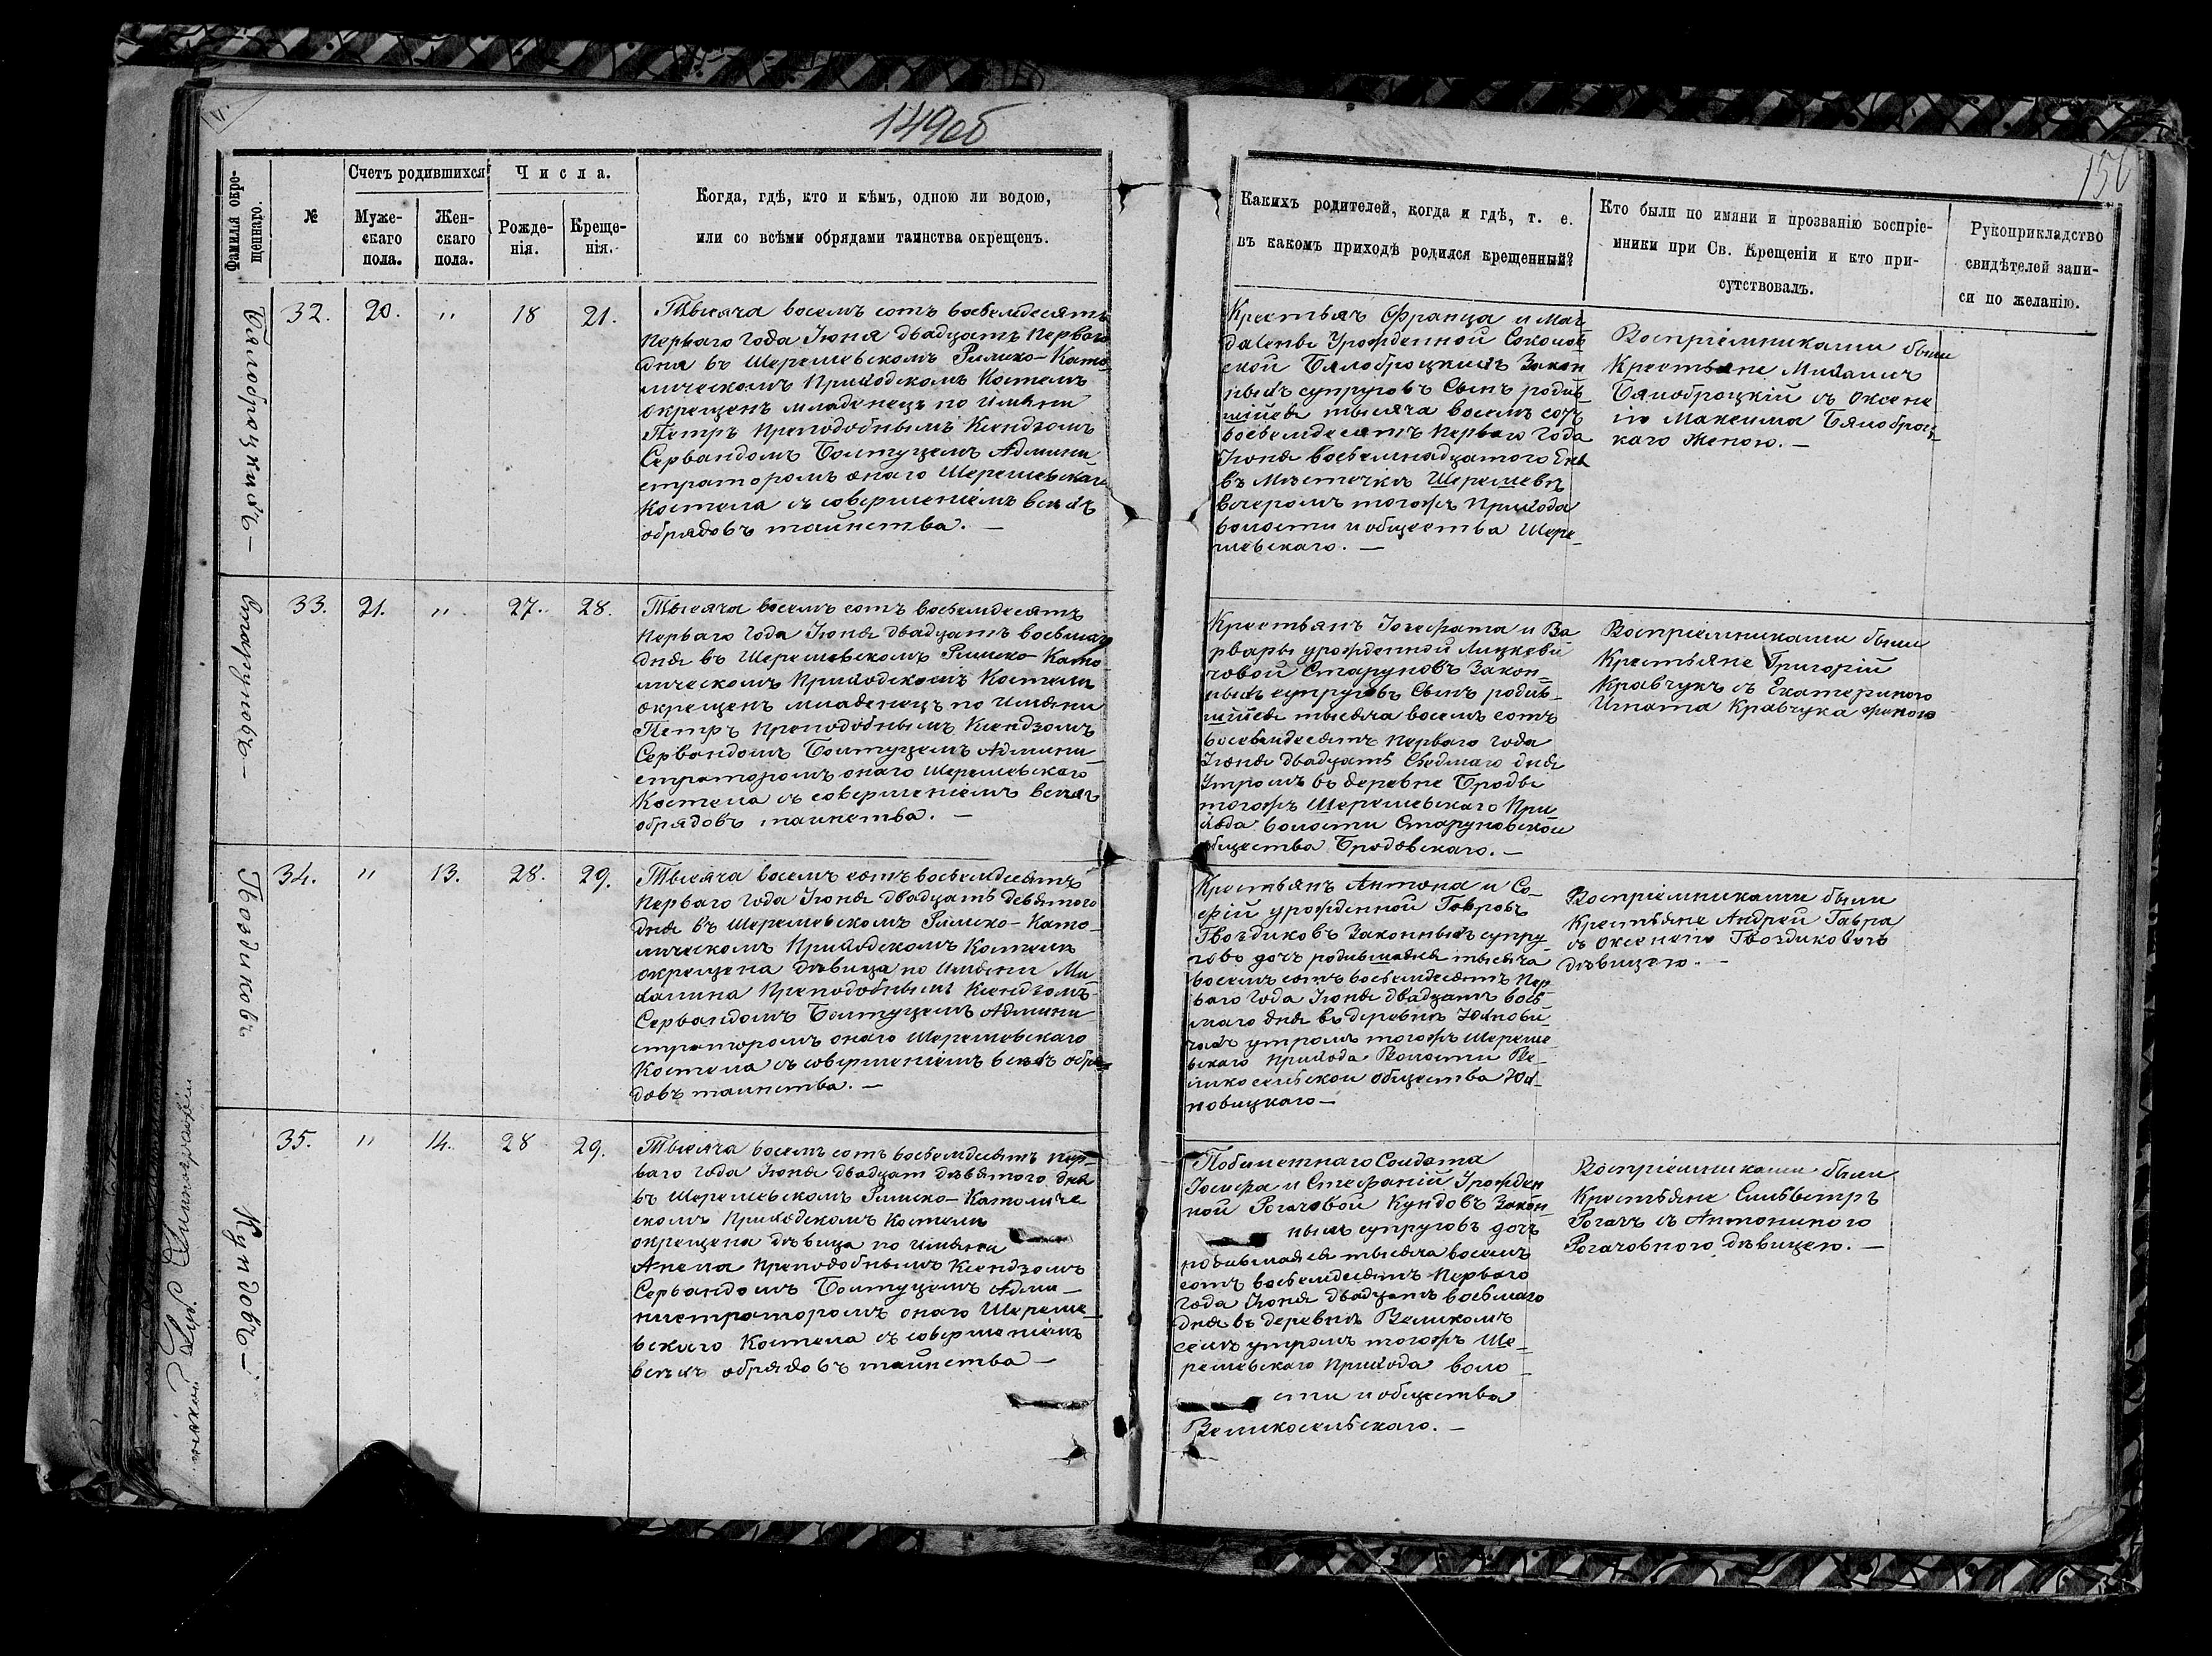 149об
150
Фамилія окре-
щеннаго.
№
Счетъ родившихся
Муже-
скаго
пола.
Жен-
скаго
пола.
Числа.
Рожде-
нія.
Креще-
нія.
Когда, гдѣ, кто и кѣмъ, одною ли водою,
или со всѣми обрядами таинства окрещенъ.
Какихъ родителей, когда и гдѣ, т. е.
въ какомъ приходѣ родился крещенный?
Кто были по имяни и прозванію воспріе-
мники при Св. Крещеніи и кто при-
сутствовалъ.
Рукоприкладство
свидѣтелей запи-
си по желанію.
Бялоброцкихъ —
32. 20. " 18 21.
Тысяча восемь сотъ восьмдесятъ
Перваго года Іюня двадцатъ Перваго
дня въ Шерешевскомъ Римско-Като-
лическомъ Приходскомъ Костелѣ
окрещенъ младенецъ по Имяни
Петръ Преподобнымъ Ксендзомъ
Сервандомъ Болтуцемъ Админи-
страторомъ онаго Шерешевскаго
Костела съ совершеніемъ всѣхъ
обрядовъ таинства. —
Крестьян Франца и Маг-
далены Урожденной Соколов-
ской Бялоброцкихъ Закон-
ныхъ супруговъ Сынъ родив-
шійся тысяча восемь сотъ
восьмдесятъ Перваго года
Іюня восьмнадцатого дня
въ Мѣстечкѣ Шерешевѣ
вечеромъ тогожъ Прихода
волости и общества Шере-
шевскаго. —
Воспріемниками были
Крестьяне Михаилъ
Бялоброцкій съ Оксені-
ю Максима Бялоброц-
каго женою. —
Старуновъ —
33. 21. " 27. 28.
Тысяча восемь сотъ восьмдесятъ
Перваго года Іюня двадцатъ восьмаго
дня въ Шерешевскомъ Римско-Като-
лическомъ Приходскомъ Костелѣ
окрещенъ младенецъ по Имяни
Петръ Преподобнымъ Ксендзомъ
Сервандомъ Болтуцемъ Админи-
страторомъ онаго Шерешевскаго
Костела съ совершеніемъ всѣхъ
обрядовъ таинства. —
Крестьянъ Іосефата и Ва-
рвары урожденной Лицкеви-
човой Старуновъ Закон-
ныхъ супруговъ Сынъ родив-
шійся тысяча восемь сотъ
восьмдесятъ Перваго года
Іюня двадцать седмаго дня
Утромъ въ деревне Броды
тогожъ Шерешевскаго При-
хода волости Старуновской
общества Бродовскаго. —
Воспріемниками были
Крестьяне Григорій
Кравчукъ съ Екатериною
Игната Кравчука женою
Гвоздиковъ
34. " 13. 28. 29.
Тысяча восемь сотъ восьмдесятъ
Перваго года Іюня двадцать девятого
дня въ Шерешевскомъ Римско-Като-
лическомъ Приходскомъ Костелѣ
окрещена дѣвица по Имяни Ми-
халина Преподобнымъ Ксендзомъ
Сервандомъ Болтуцемъ Админи-
страторомъ онаго Шерешевскаго
Костела съ совершеніемъ всѣхъ обря-
довъ таинства. —
Крестьянъ Антона и Со-
фій урожденной Гавровъ
Гвоздиковъ Законныхъ супру-
говъ дочь родившаяся тысяча
восемь сотъ восьмдесятъ Пер-
ваго года Іюня двадцатъ вось-
маго дня въ деревнѣ Юхнови-
чахъ утромъ тогожъ Шереше-
вскаго Прихода Волости Ве-
ликосельской общества Юх-
новицкаго —
Воспріемниками были
Крестьяне Андрей Гавра
съ Оксеніею Гвоздиковою
дѣвицею. —
Кундовъ —
35. " 14. 28 29.
Тысяча восемь сотъ восьмдесятъ пер-
ваго года Іюня двадцат девятого дня
въ Шерешевскомъ Римско-Католиче-
скомъ Приходскомъ Костелѣ
окрещена дѣвица по Имяни
Анела Преподобнымъ Ксендзомъ
Сервандомъ Болтуцемъ Адми-
нистраторомъ онаго Шереше-
вскаго Костела съ совершеніемъ
всѣхъ обрядовъ таинства —
Побилетнаго Солдата
Іосифа и Стефаній Урожден-
ной Рогачовой Кундовъ Закон-
ныхъ супруговъ дочь
родившаяся тысяча восемь
сотъ восьмдесятъ Перваго
года Іюня двадцатъ восьмаго
дня въ деревнѣ Великомъ
селѣ утромъ тогожъ Ше-
решевскаго Прихода воло-
сти и общества
Великосельскаго. —
Воспріемниками были
Крестьяне Сильвестръ
Рогачъ съ Антониною
Рогачовною дѣвицею. —